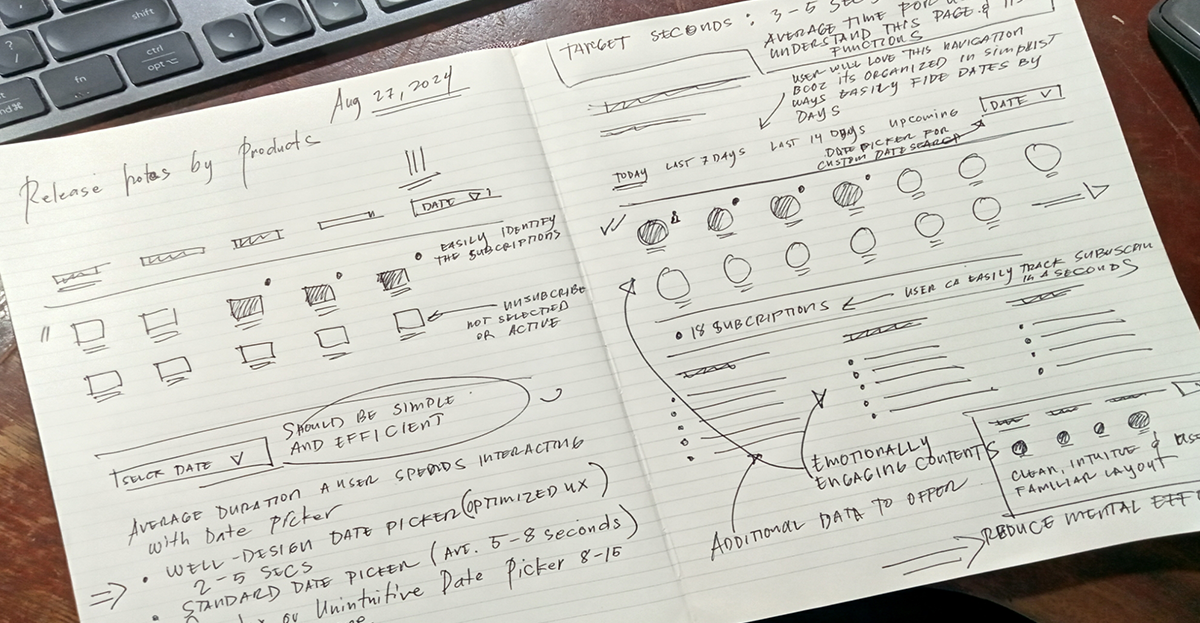 ?
/
shift
ctrl
opt
fn
cmd
Aug 27, 2024
Release notes by Products
DATE
EASILY IDENTIFY
THE SUBSCRIPTIONS
UNSUBSCRIBE
NOT SELECTED
OR ACTIVE
SHOULD BE SIMPLE
AND EFFICIENT
SELCK DATE
AVERAGE DURATION A USER SPENDS INTERACTING
with DATE PICKER
• WELL-DESIGN DATE PICKER (OPTIMIZED UX)
2-5 SECS
• STANDARD DATE PICKER (AVE. 5-8 seconds)
or Unintuitive Date Picker 8-15
TARGET SECONDS: 3-5 SEC
AVERAGE TIME FOR
UNDERSTAND THIS PAGE &
FUNCTIONS
USER WILL LOVE THIS NAVIGATION
BCOZ ITS ORGANIZED IN SIMPLIST
WAYS EASILY FIDE DATES BY
DAYS
TODAY LAST 7 DAYS LAST 14 DAYS UPCOMING
DATE
DATE PICKER FOR
CUSTOM DATE SEARCH
• 18 SUBCRIPTIONS
USER CA EASILY TRACK
IN A SECONDS
EMOTIONALLY
ENGAGING CONTENTS
ADDITIONAL DATA TO OFFER
CLEAR, INTUITUE &
FAMILIAR LAYOUT
REDUCE MENTAL EFF